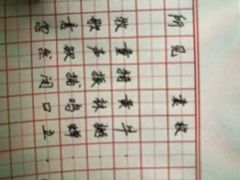 所见 袁枚
牧童骑黄牛，
歌声振林樾。
意欲捕鸣蝉，
忽然闭口立。